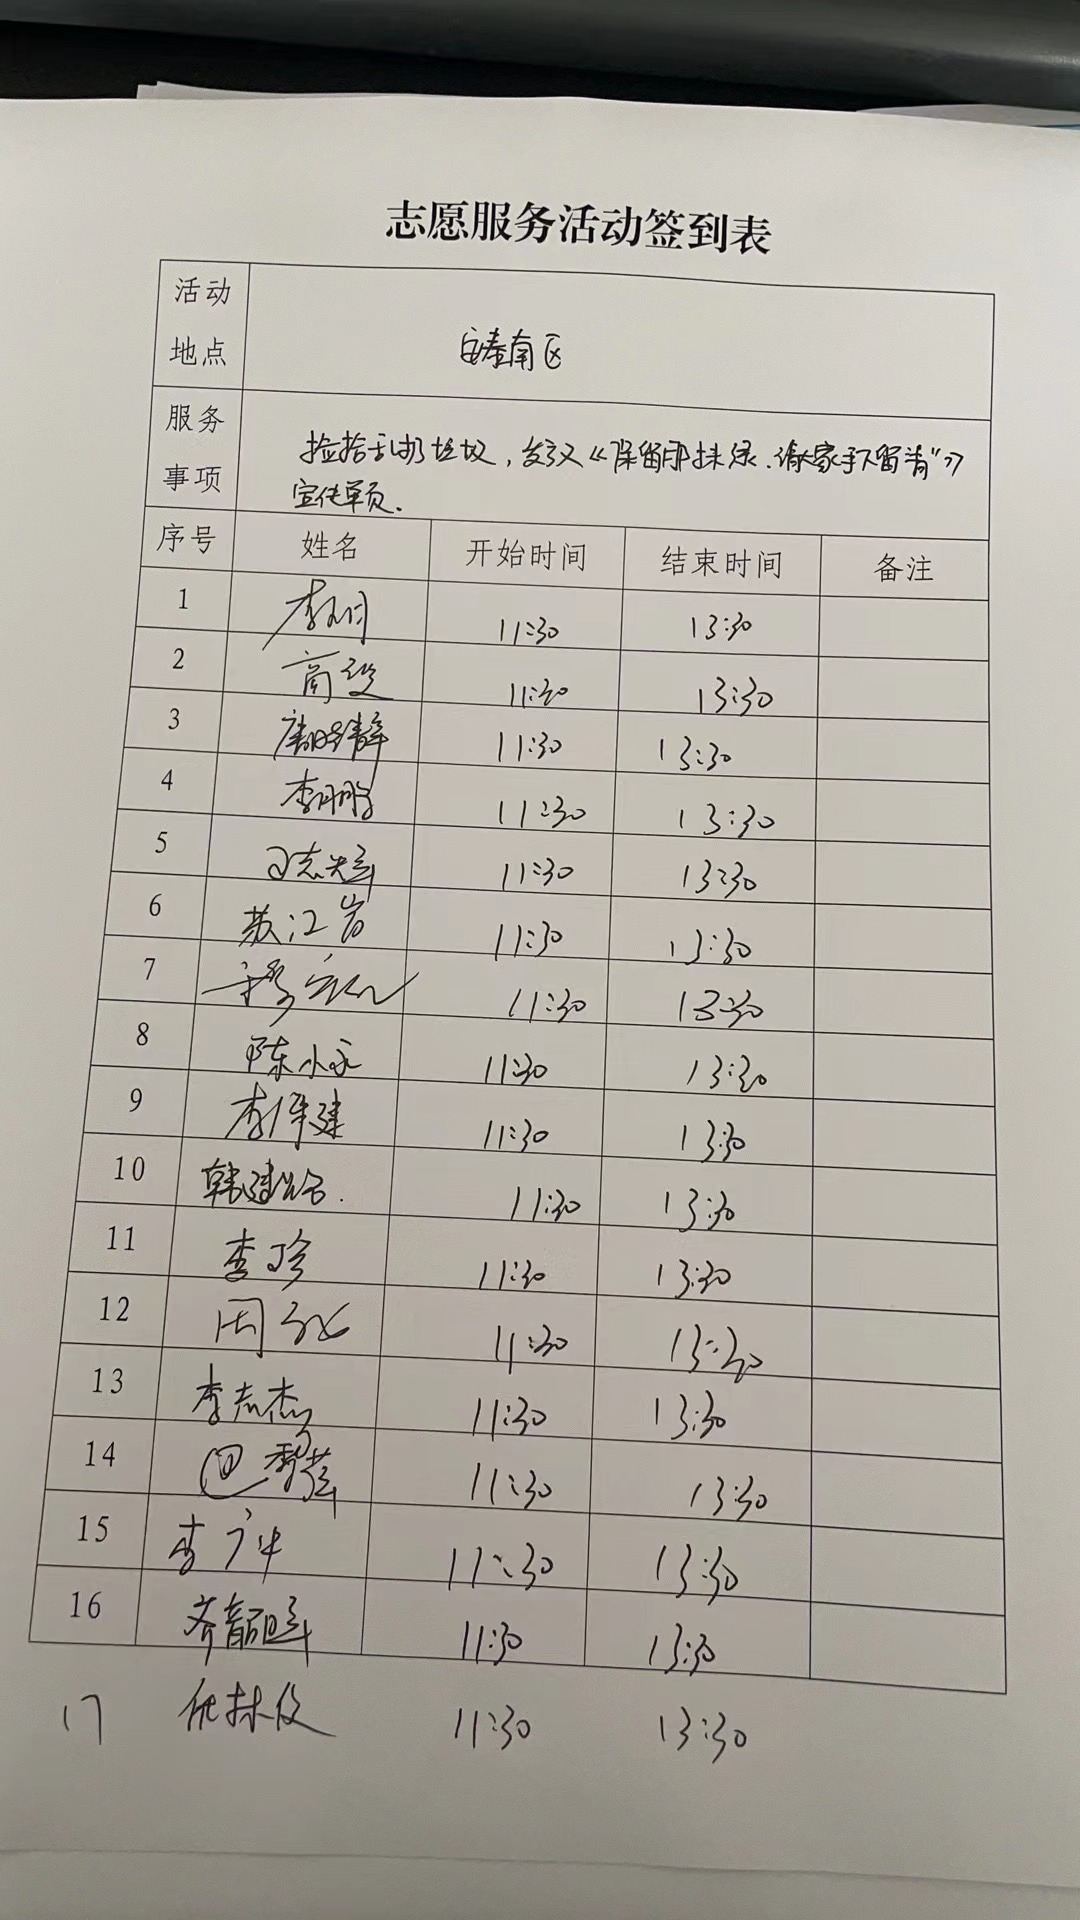 志愿服务活动签到表
活动
地点
南区
服务
事项
捡拾乱扔垃圾，发放《保留那抹绿，请大家手下留"青"》
宣传单页.
序号 姓名 开始时间 结束时间 备注
1 11:30 13:30
2 11:30 13:30
3 11:30 13:30
4 李明 11:30 13:30
5 11:30 13:30
6 苏江岩 11:30 13:30
7 11:30 13:30
8 陈小永 11:30 13:30
9 李保建 11:30 13:30
10 韩建 11:30 13:30
11 李珍 11:30 13:30
12 周 11:30 13:30
13 李志杰 11:30 13:30
14 11:30 13:30
15 李广冲 11:30 13:30
16 齐 11:30 13:30
17 任 11:30 13:30